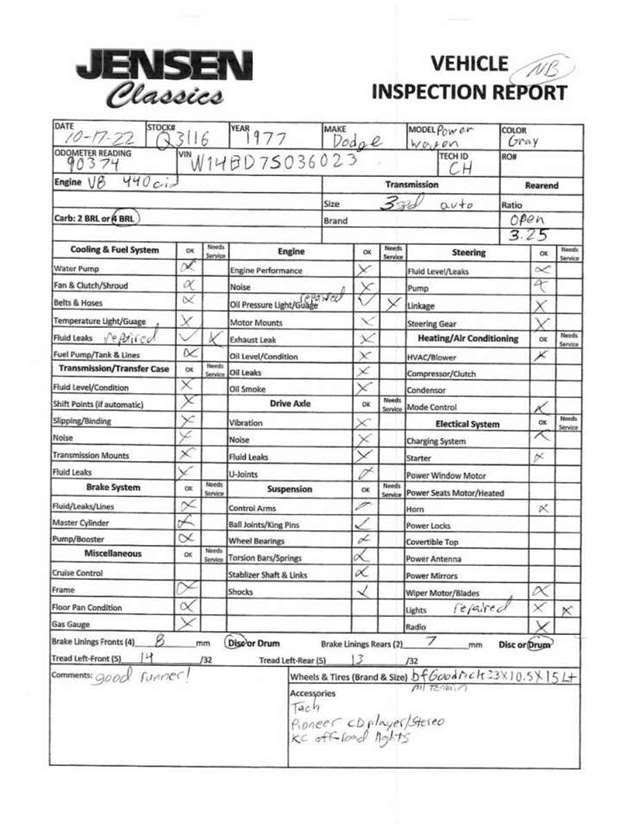 JENSEN
Classics
VEHICLE
INSPECTION REPORT
NB
DATE 10-17-22 STOCK# Q3116 YEAR 1977 MAKE Dodge MODEL Power Wagon COLOR Gray
ODOMETER READING 90374 VIN W14BD7S036023 TECH ID CH RO#
Engine V8 440cid Transmission Rearend
Size 3rd auto Ratio
Carb: 2 BRL or 4 BRL Brand open
3.25
Cooling & Fuel System OK Needs Service Engine OK Needs Service Steering OK Needs Service
Water Pump X Engine Performance X Fluid Level/Leaks X
Fan & Clutch/Shroud X Noise X Pump X
Belts & Hoses X Oil Pressure Light/Guage repaired ✓ X Linkage X
Temperature Light/Guage X Motor Mounts X Steering Gear X
Fluid Leaks repaired ✓ X Exhaust Leak X Heating/Air Conditioning OK Needs Service
Fuel Pump/Tank & Lines X Oil Level/Condition X HVAC/Blower X
Transmission/Transfer Case OK Needs Service Oil Leaks X Compressor/Clutch
Fluid Level/Condition X Oil Smoke X Condensor
Shift Points (if automatic) X Drive Axle OK Needs Service Mode Control X
Slipping/Binding X Vibration X Electical System OK Needs Service
Noise X Noise X Charging System X
Transmission Mounts X Fluid Leaks X Starter X
Fluid Leaks X U-Joints X Power Window Motor
Brake System OK Needs Service Suspension OK Needs Service Power Seats Motor/Heated
Fluid/Leaks/Lines X Control Arms Horn X
Master Cylinder X Ball Joints/King Pins ✓ Power Locks
Pump/Booster X Wheel Bearings X Covertible Top
Miscellaneous OK Needs Service Torsion Bars/Springs X Power Antenna
Cruise Control Stablizer Shaft & Links X Power Mirrors
Frame X Shocks X Wiper Motor/Blades X
Floor Pan Condition X Lights repaired X X
Gas Gauge X Radio X
Brake Linings Fronts (4) 8 mm Disc or Drum Brake Linings Rears (2) 7 mm Disc or Drum
Tread Left-Front (5) 14 /32 Tread Left-Rear (5) 13 /32
Comments: good runner! Wheels & Tires (Brand & Size) bfGoodrich 33X10.5X15 Lt
All Terrain
Accessories
Tach
Pioneer CD player/Stereo
KC off-load lights